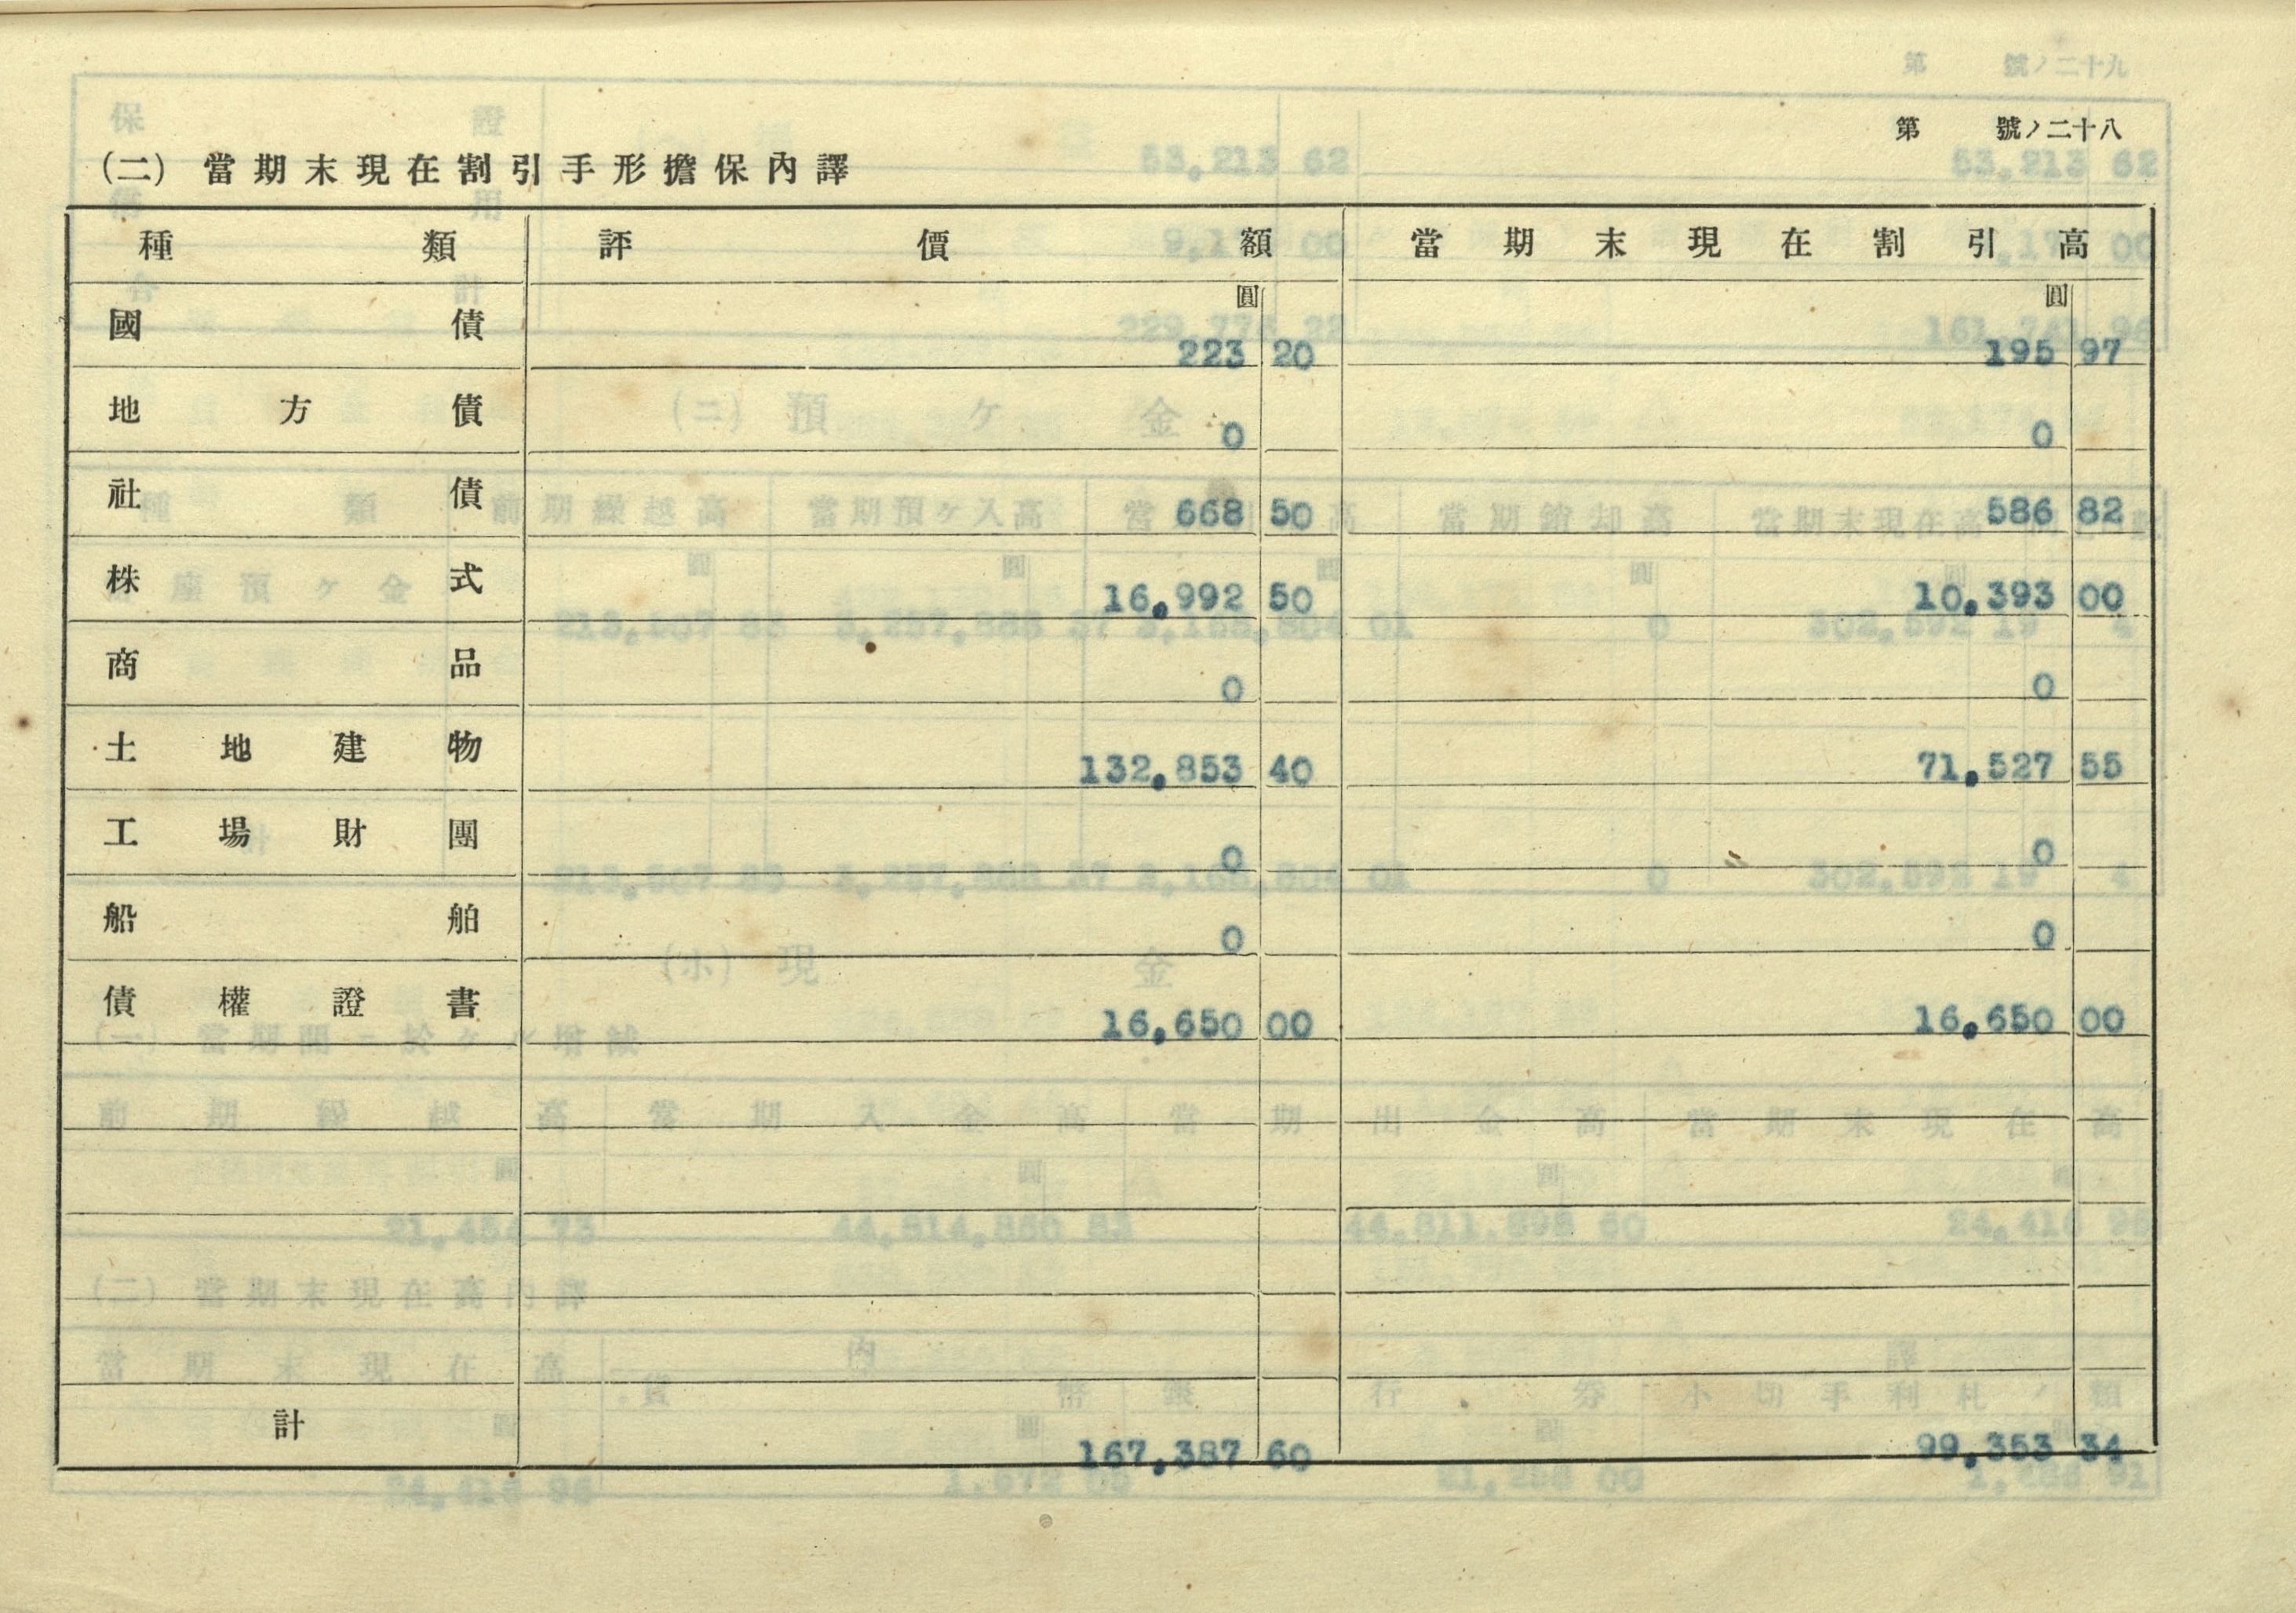 第 號ノ二十八
(二) 當期末現在割引手形擔保內譯
種類 評價額 當期末現在割引高
圓 圓
國債 223 20 195 97
地方債 0 0
社債 668 50 586 82
株式 16,992 50 10,393 00
商品 0 0
土地建物 132,853 40 71,527 55
工場財團 0 0
船舶 0 0
債權證書 16,650 00 16,650 00
計 167,387 60 99,353 34